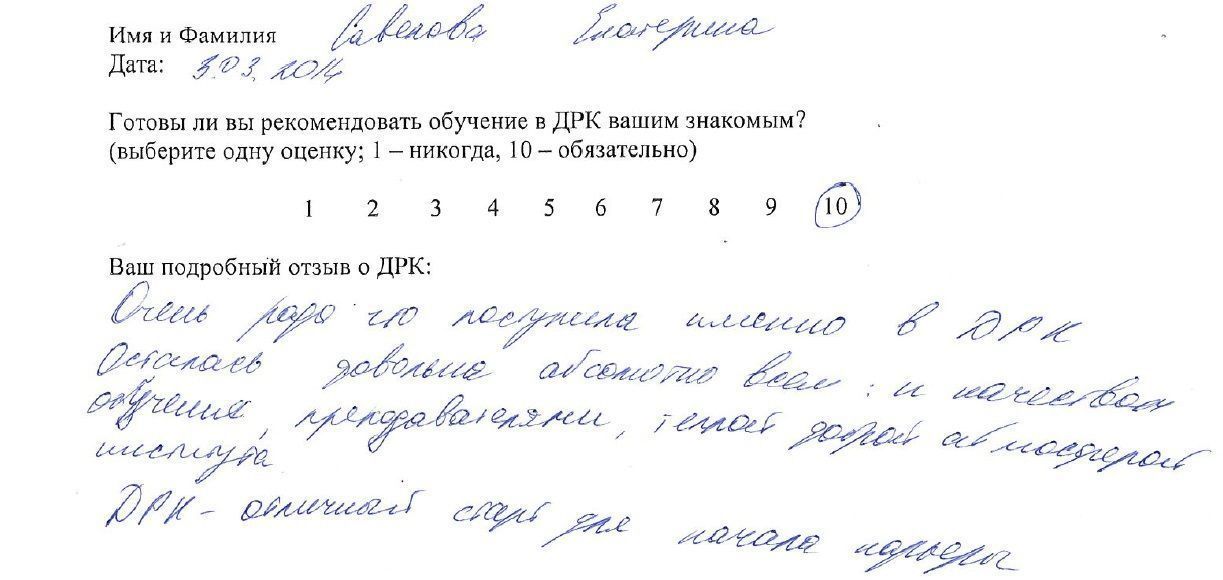 Имя и Фамилия Савелова Екатерина
Дата: 3.03.2014
Готовы ли вы рекомендовать обучение в ДРК вашим знакомым?
(выберите одну оценку; 1 – никогда, 10 – обязательно)
1 2 3 4 5 6 7 8 9 10
Ваш подробный отзыв о ДРК:
Очень рада что поступила именно в ДРК
Осталась довольна абсолютно всем: и качеством
обучения, преподавателями, теплой доброй атмосферой
института
ДРК - отличный старт для начала карьеры